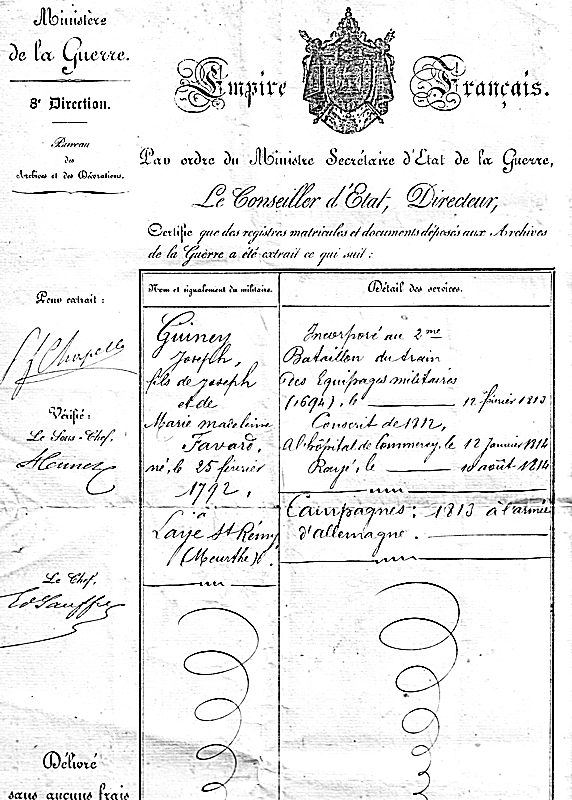 Ministère
de la Guerre.
8e Direction.
Bureau
des
Archives et des Décorations.
Empire Français.
Par ordre du Ministre Secrétaire d'État de la Guerre,
Le Conseiller d'État, Directeur,
Certifie que des registres matricules et documents déposés aux Archives
de la Guerre a été extrait ce qui suit :
Pour extrait :
Chapelle
Vérifié :
Le Sous-Chef,
Le Chef,
Délivré
sans aucuns frais
Nom et signalement du militaire.
Guiney
Joseph,
fils de Joseph
et de
Marie madeleine
Favard,
né, le 25 février
1792,
à
Laye St Rémy
(Meurthe).
Détail des services.
Incorporé au 2me
Bataillon du train
des Equipages militaires
(1694), le 12 février 1813
Conscrit de 1812,
A l'hôpital de Commercy, le 12 Janvier 1814
Rayé, le 10 août 1814
Campagnes : 1813 à l'armée
d'allemagne.